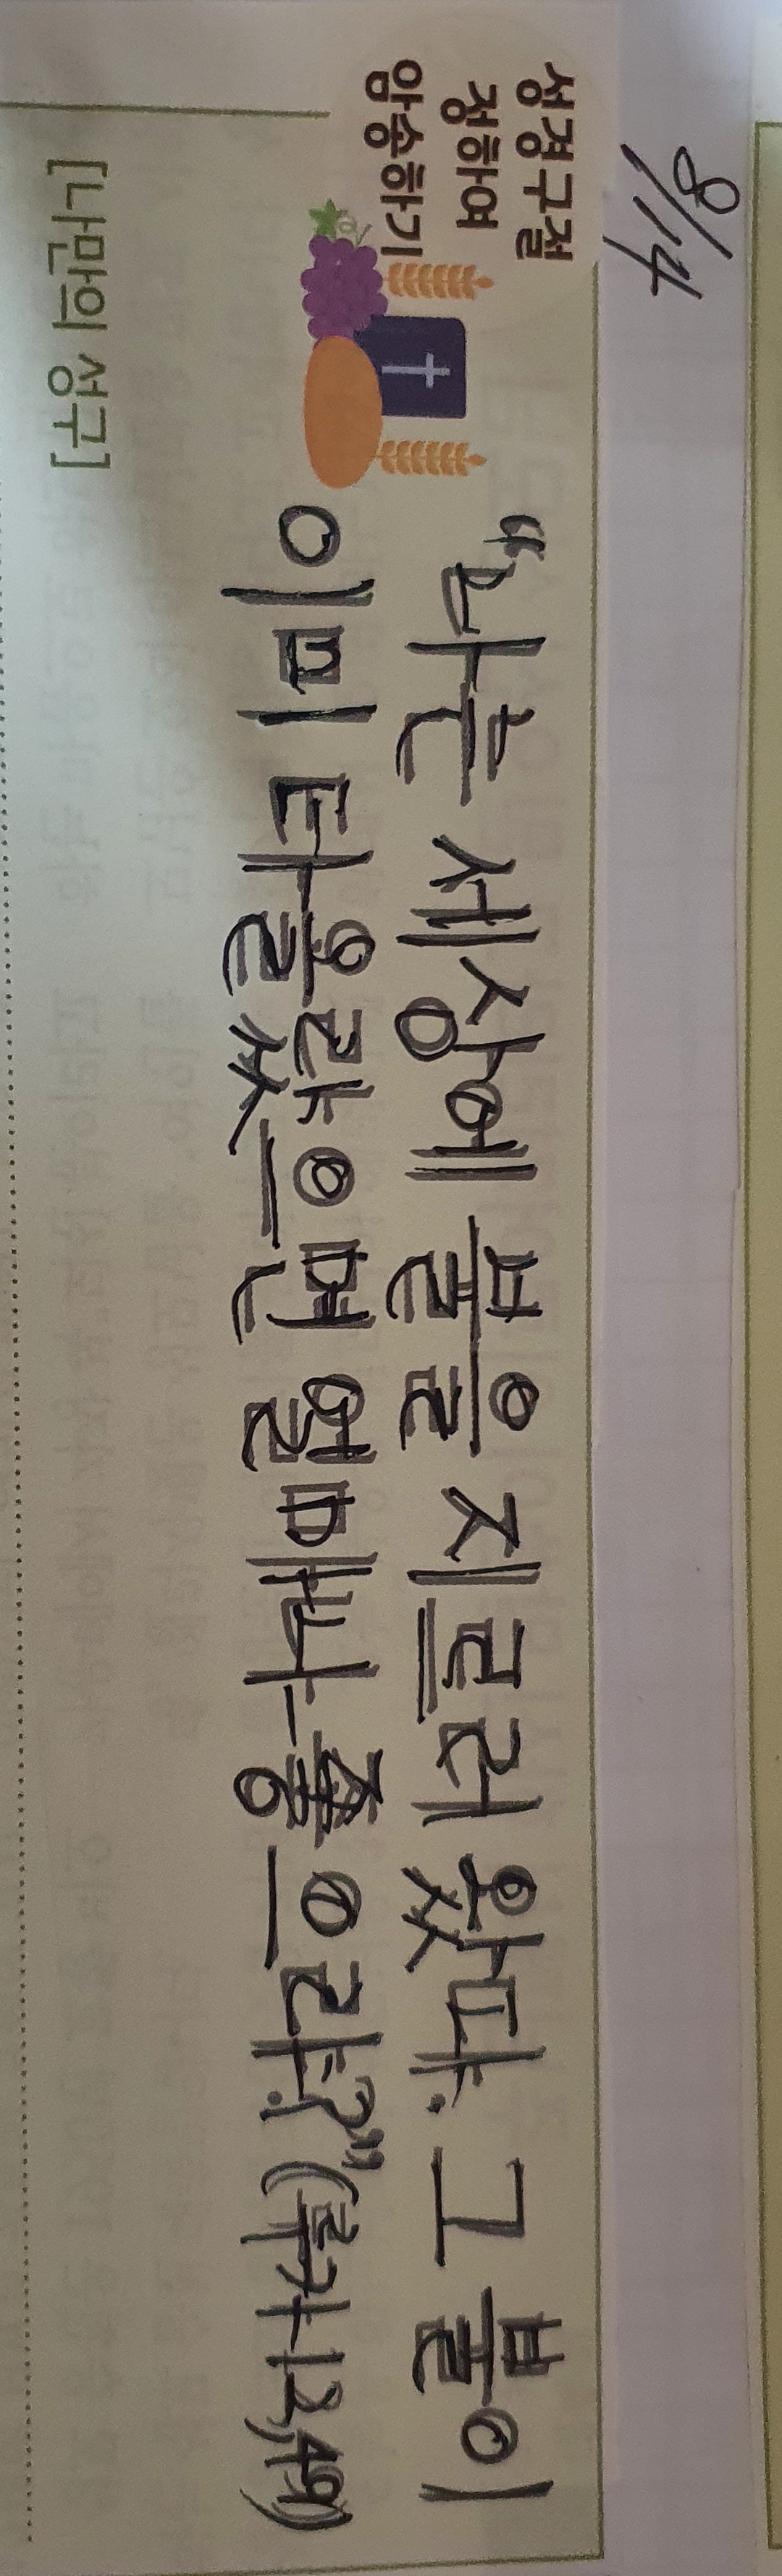 8/14
성경구절
정하여
암송하기
"나는 세상에 불을 지르러 왔다. 그 불이
이미 타올랐으면 얼마나 좋으랴?" (루카12,49)
[나만의 성구]